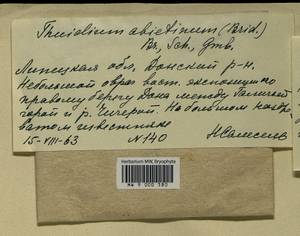 Thuidium abietinum (Brid.)
Br., Sch., Gmb.
Липецкая обл, Донский р-н.
Небольшой овраг вост. экспозиции по
правому берегу Дона между Галичьей
горой и р.
На большом
ватом известняке
15-VIII-63 N140
Herbarium MW, Bryophyta
MW 9 000 380